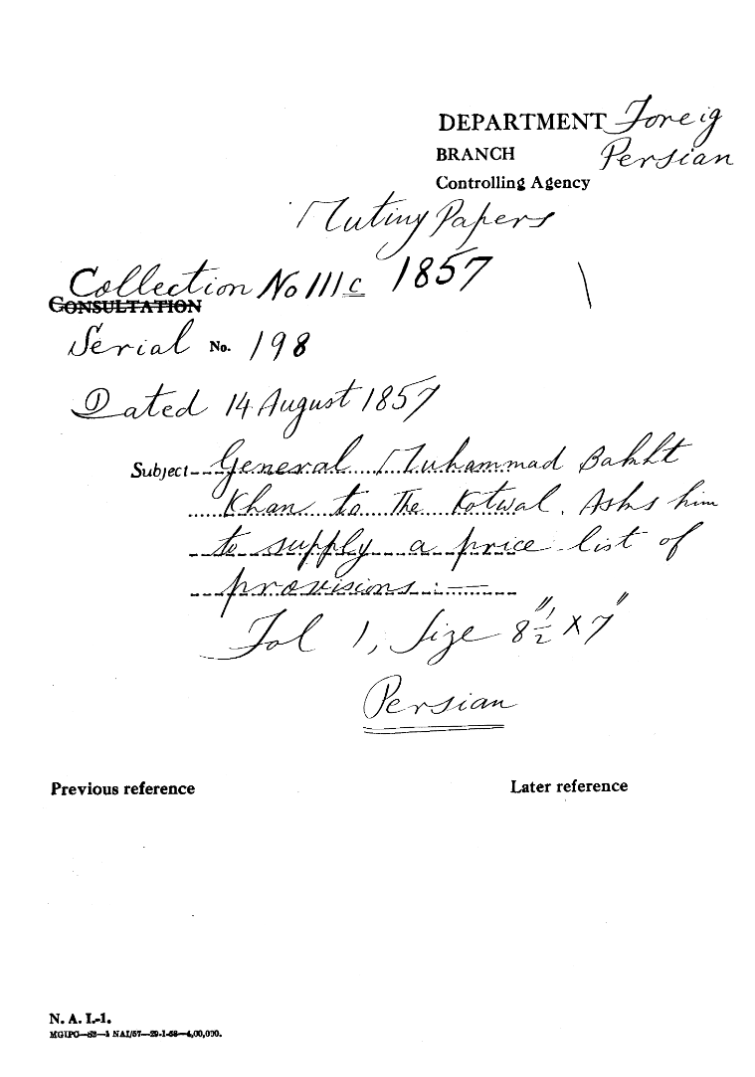 DEPARTMENT Foreig
BRANCH Persian
Controlling Agency
Mutiny Papers
Collection No 111c 1857
CONSULTATION
Serial No. 198
Dated 14 August 1857
Subject General Muhammad Bakht
Khan to The Kotwal. Asks him
to supply a price list of
provisions:—
Fol 1, Size 8½" X 7"
Persian
Previous reference Later reference
N. A. I.-1.